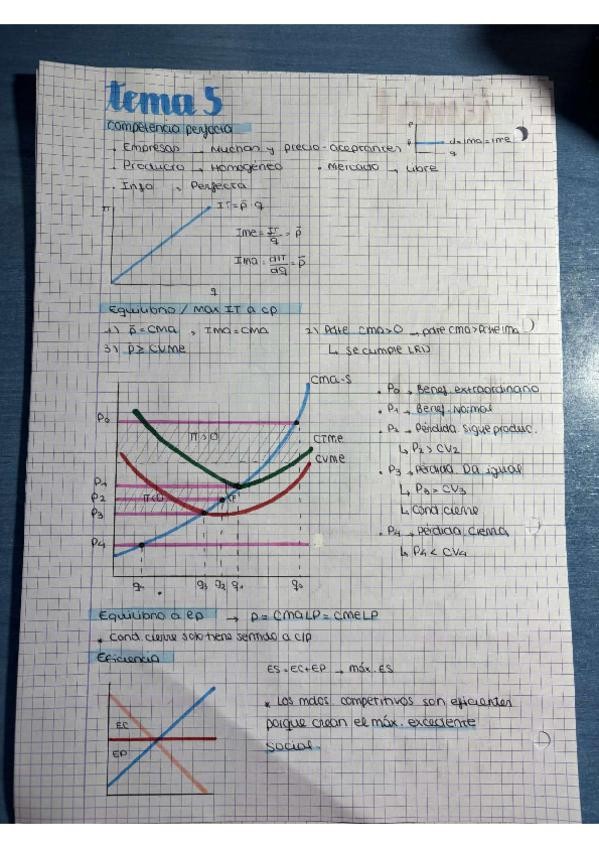 tema 5
Competencia perfecta
. Empresas → Muchas y precio-aceptantes
P
P
q
d=Ima=Ime
. Producto → Homogéneo . Mercado → Libre
. Info → Perfecta
IT
IT=p̄·q
Ime=IT/q=p̄
Ima=dIT/dq=p̄
q
Equilibrio / Max IT a cp
1) p̄=CMA , IMA=CMA 2) Pdte CMa>0 → pdte CMa>Pdte Ima
3) P≥CVMe ↳ se cumple LRD
CMa=S
P0
π>0
CTMe
CVMe
P1
P2
π<0
P3
P4
q4 q3 q2 q1 q0
. P0 → Benef. extraordinario
. P1 → Benef. Normal
. P2 → Pérdida. Sigue produc.
↳ P2 > CV2
. P3 → Pérdida. Da igual
↳ P3 = CV3
↳ Cond cierre
. P4 → Pérdida. Cierra
↳ P4 < CV4
Equilibrio a lp → P = CMaLP = CMeLP
* Cond. cierre solo tiene sentido a c/p
Eficiencia
ES=EC+EP → máx. ES
EC
EP
* Los mdos. competitivos son eficientes
porque crean el máx. excedente
social.